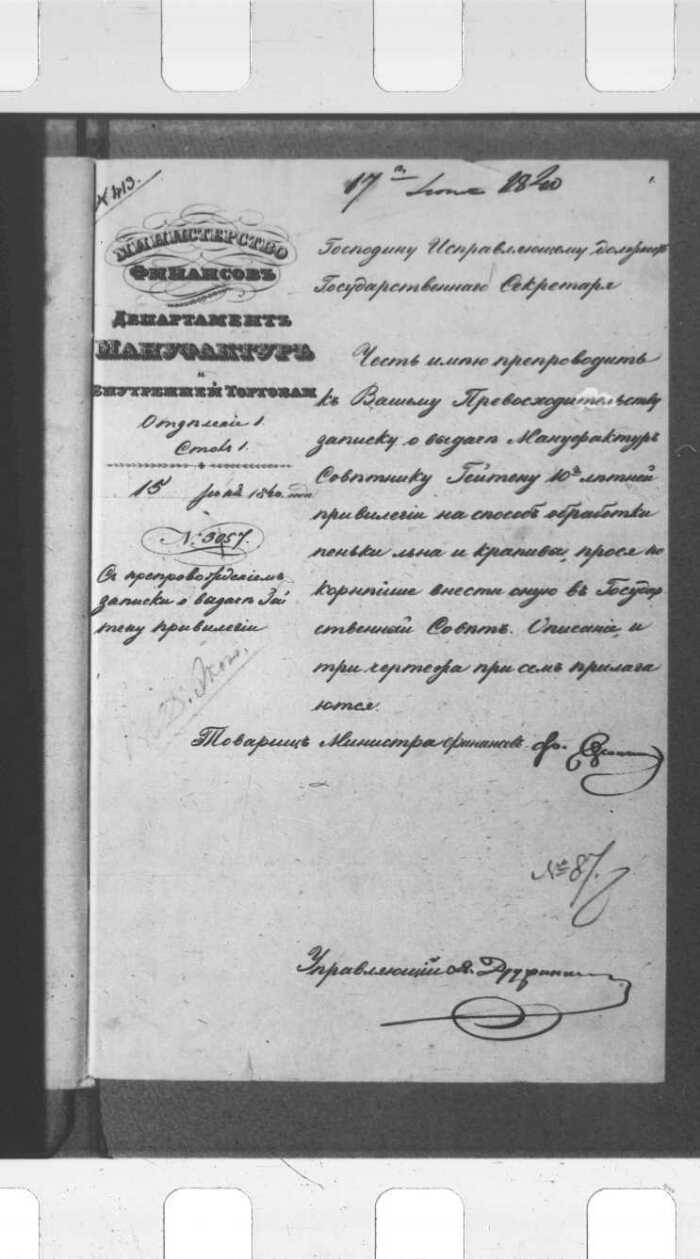 № 413.
17го Іюня 1840
МИНИСТЕРСТВО
ФИНАНСОВЪ
ДЕПАРТАМЕНТЪ
МАНУФАКТУРЪ
И
ВНУТРЕННЕЙ ТОРГОВЛИ
Отдѣленіе 1.
Столъ 1.
15 Іюня 1840 года
№ 3057.
Съ препровожденіемъ
записки о выдачѣ Гей
тену привилегіи
Господину Исправляющему должнос
Государственнаго Секретаря
Честь имѣю препроводить
къ Вашему Превосходительству
записку о выдачѣ Мануфактуръ
Совѣтнику Гейтену 10ти лѣтней
привилегіи на способъ обработки
пеньки льна и крапивы, прося по
корнѣйше внести оную въ Государ
ственный Совѣтъ. Описаніе и
три чертежа при семъ прилага
ются.
Товарищъ Министра Финансовъ Ѳ.
№ 87.
Управляющій Я. Дружининъ